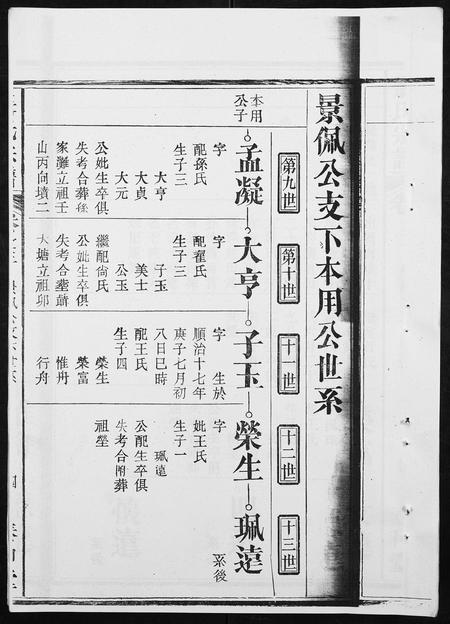 景佩公支下本用公世系
第九世
第十世
十一世
十二世
十三世
本用
公子
孟凝
大亨
子玉
榮生
珮遠
系後
字
配孫氏
生子三
大亨
大貞
大元
公妣生卒俱
失考合葬孫
家灘立祖壬
山丙向墳二
字
配翟氏
生子三
子玉
美士
公玉
繼配尙氏
公妣生卒俱
失考合塟蕭
大塘立祖卯
字 生於
順治十七年
庚子七月初
八日巳時
配王氏
生子四
榮生
榮富
惟舟
行舟
字
妣王氏
生子一
珮遠
公配生卒俱
失考合附葬
祖塋
四